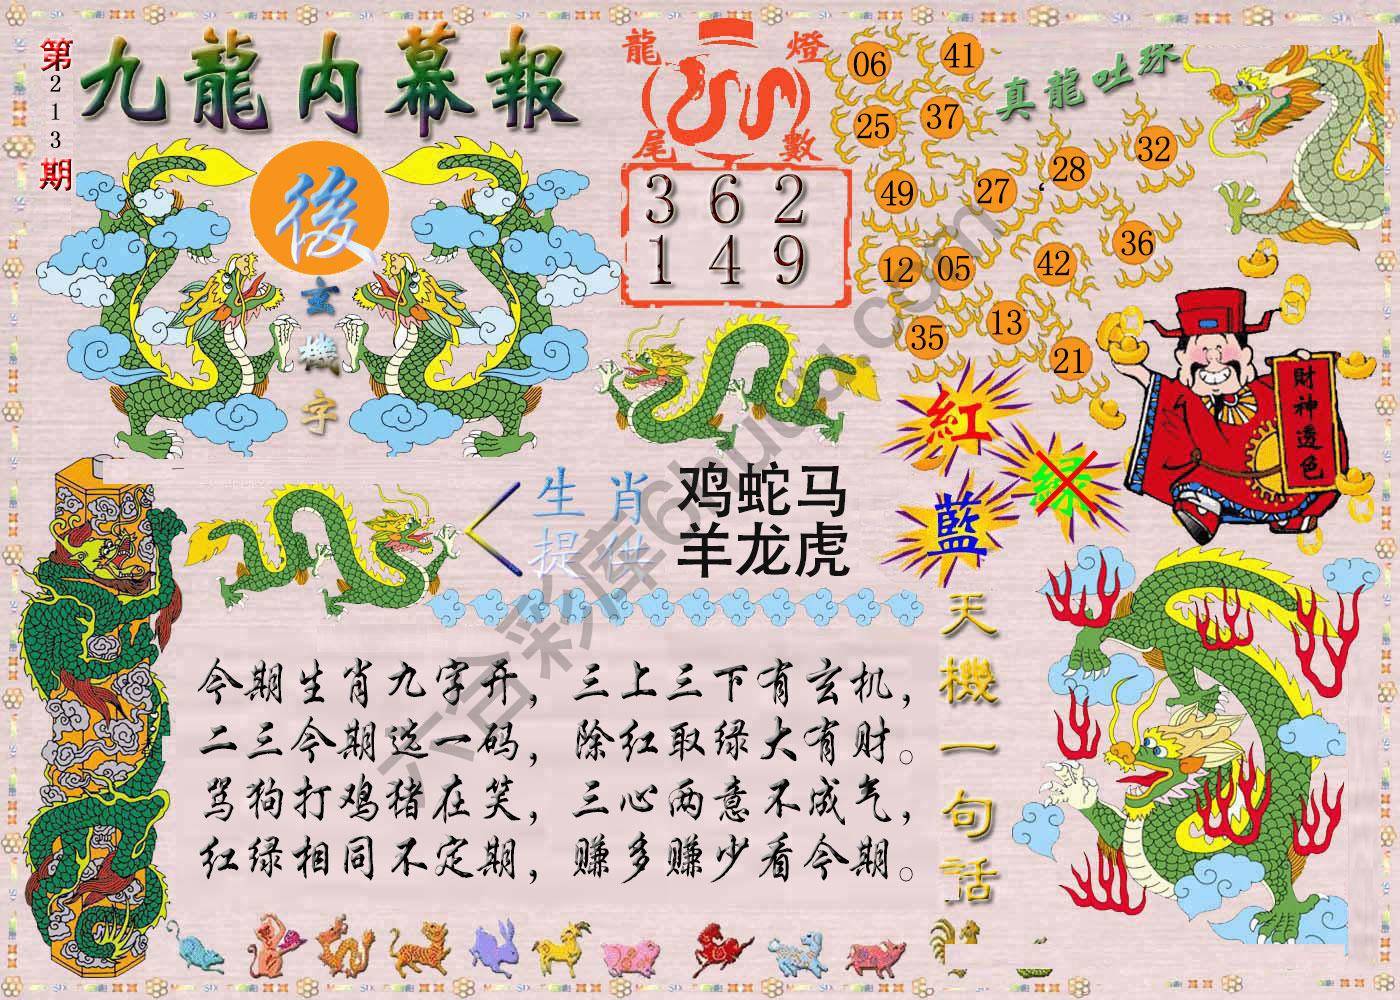 第213期
九龍内幕報
後
玄機字
龍燈
尾數
3 6 2
1 4 9
真龍吐珠
06 41
25 37
49 27 28 32
12 05 42 36
35 13 21
財神透色
紅
藍
绿
生肖
提供
鸡蛇马
羊龙虎
天機一句話
今期生肖九字开，三上三下有玄机，
二三今期选一码，除红取绿大有财。
骂狗打鸡猪在笑，三心两意不成气，
红绿相同不定期，赚多赚少看今期。